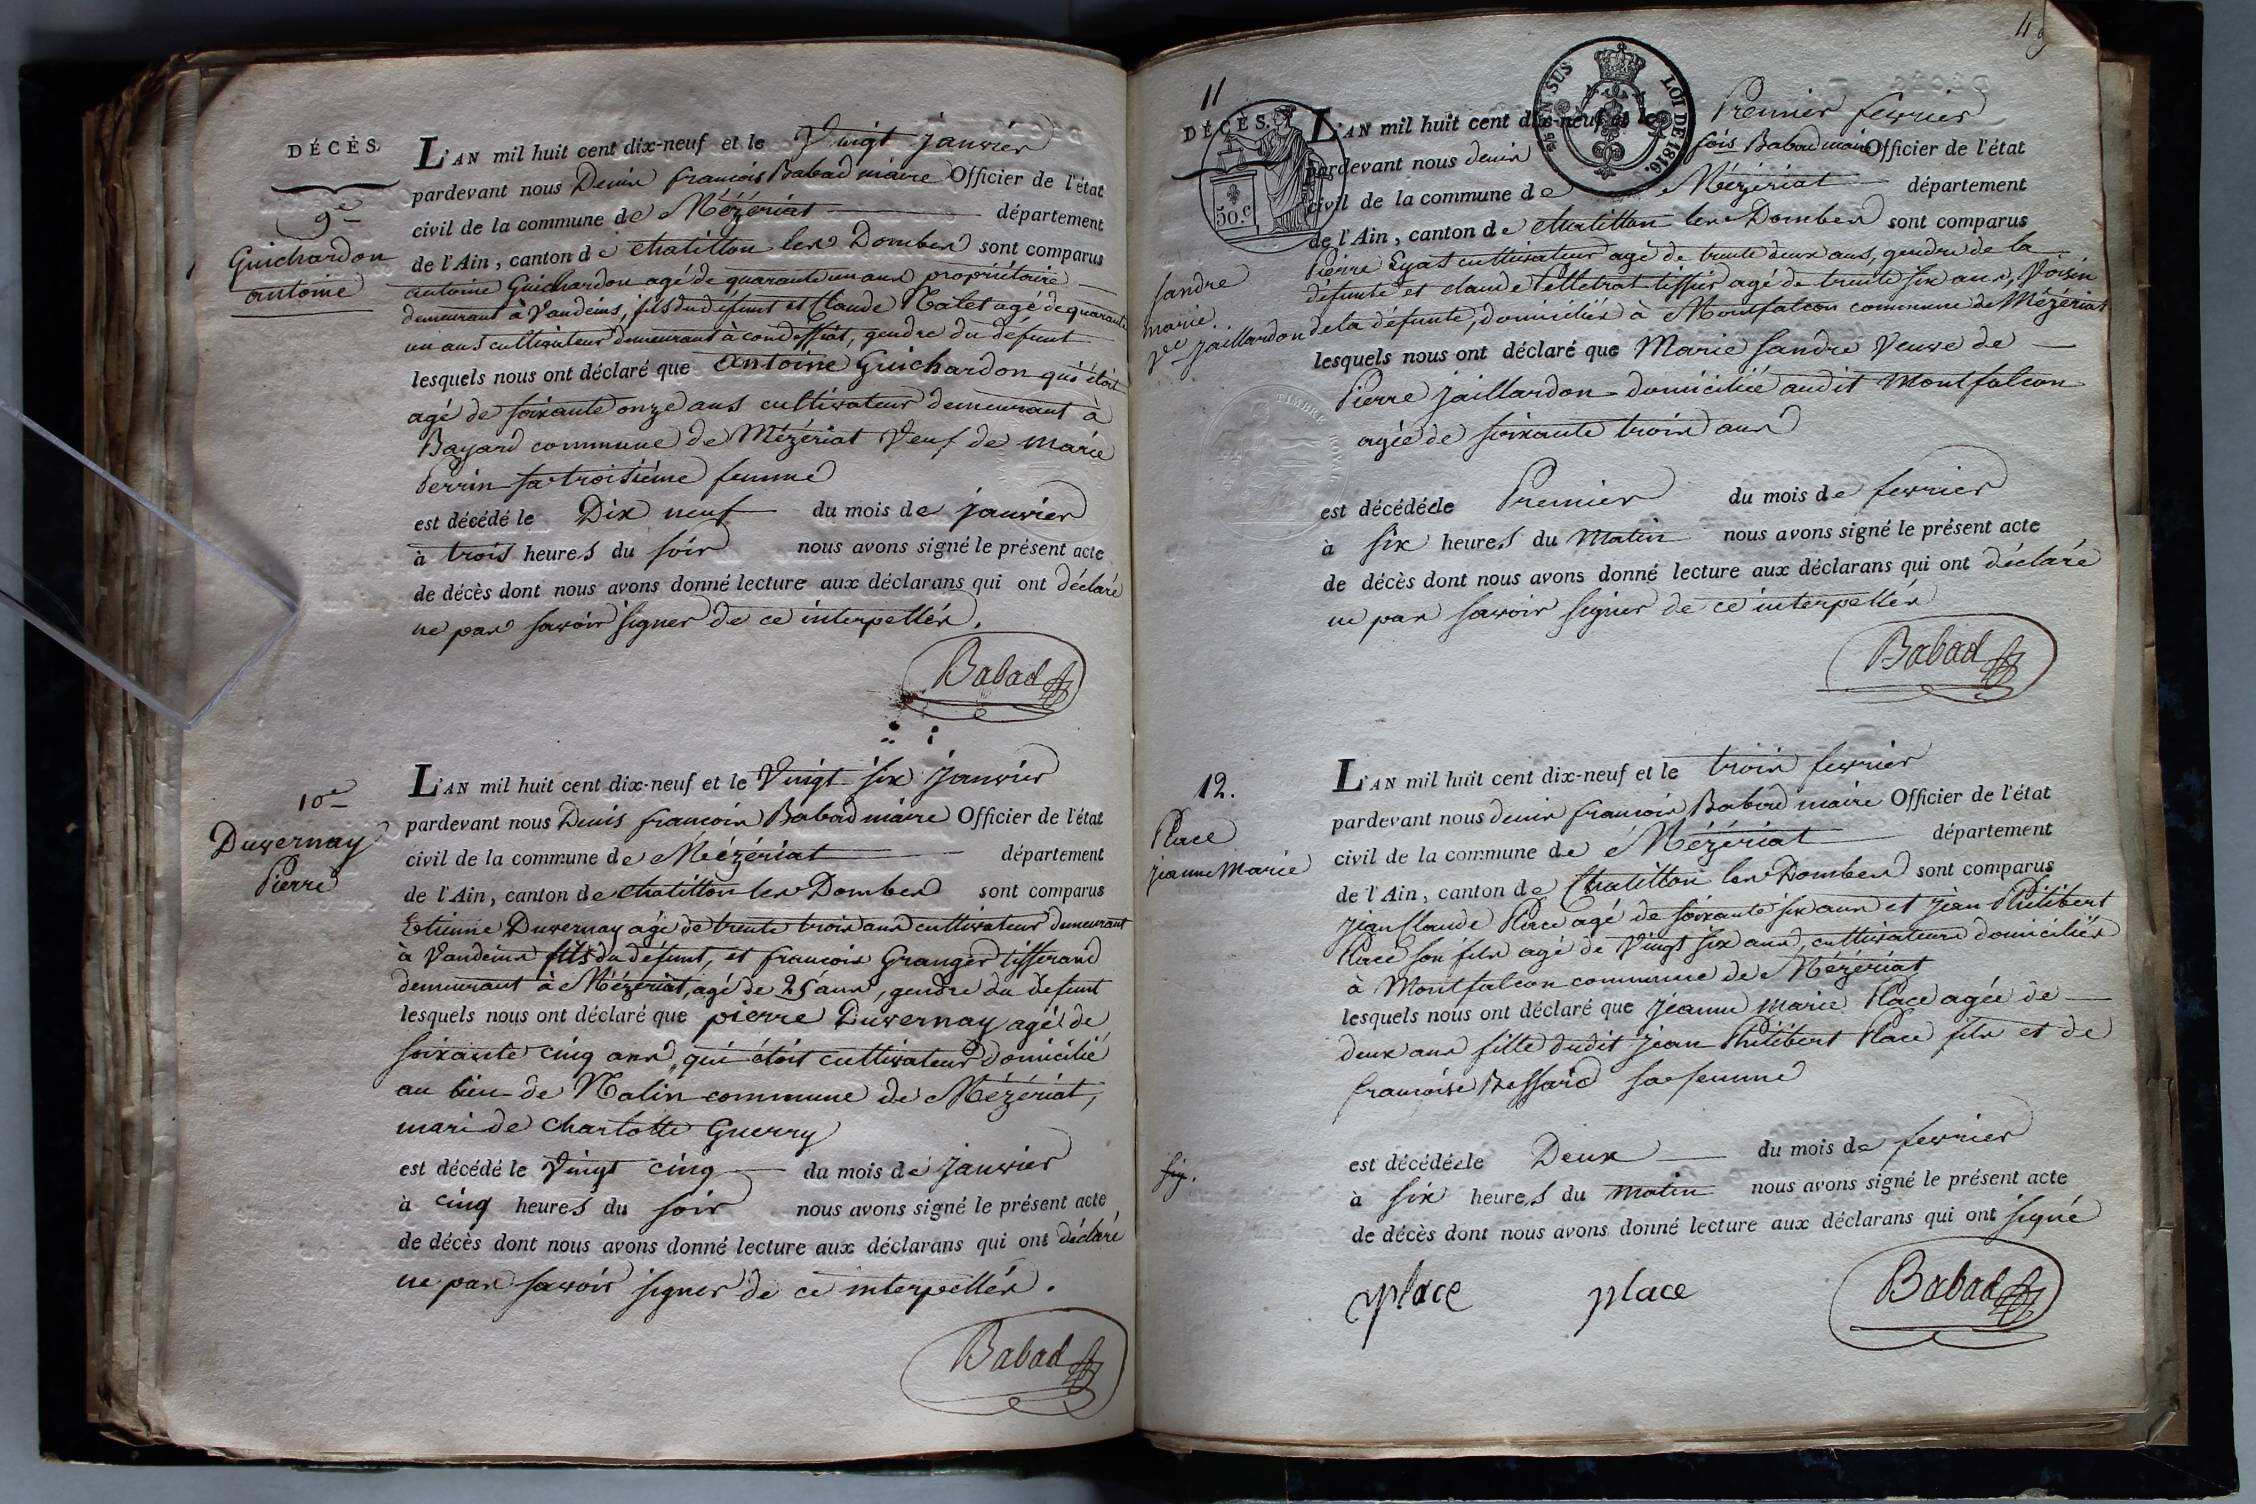 DÉCÈS
9e
Guichardon
antoine
L'AN mil huit cent dix-neuf et le Vingt janvier
pardevant nous Denis francois Babad maire Officier de l'état
civil de la commune de Mézériat département
de l'Ain, canton de chatillon les Dombes sont comparus
antoine Guichardon agé de quarante un ans propriétaire
demeurant à Vandeins, fils du défunt et Claude Malet agé de quarante
un ans cultivateur demeurant à condessiat, gendre du défunt
lesquels nous ont déclaré que antoine Guichardon qui étoit
agé de soixante onze ans cultivateur demeurant à
Bayard commune de Mézériat Veuf de marie
Perrin sa troisième femme
est décédé le Dix neuf du mois de janvier
à trois heures du soir nous avons signé le présent acte
de décès dont nous avons donné lecture aux déclarans qui ont déclaré
ne pas savoir signer de ce interpellés.
Babad
10e
Duvernay
Pierre
L'AN mil huit cent dix-neuf et le Vingt six janvier
pardevant nous Denis francois Babad maire Officier de l'état
civil de la commune de Mézériat département
de l'Ain, canton de chatillon les Dombes sont comparus
Etienne Duvernay agé de trente trois ans cultivateur demeurant
à Vandeins fils du défunt, et francois Granger tisserand
demeurant à Mézériat, agé de 25 ans, gendre du défunt
lesquels nous ont déclaré que pierre Duvernay agé de
soixante cinq ans, qui étoit cultivateur domicilié
au lieu de Malin commune de Mézériat,
mari de charlotte Guerry
est décédé le Vingt cinq du mois de janvier
à cinq heures du soir nous avons signé le présent acte
de décès dont nous avons donné lecture aux déclarans qui ont déclaré
ne pas savoir signer de ce interpellés.
Babad
11
DÉCÈS.
50.c
EN SUS LOI DE 1816.
TIMBRE ROYAL
Sandre
marie
Ve jaillardon
L'AN mil huit cent dix-neuf et le Premier fevrier
pardevant nous denis fois Babad maire Officier de l'état
civil de la commune de Mézériat département
de l'Ain, canton de chatillon les Dombes sont comparus
Pierre Eyat cultivateur agé de trente deux ans, gendre de la
défunte et claude Pelletrat tissier agé de trente six ans, Voisin
de la défunte, domiciliés à Montfalcon commune de Mézériat
lesquels nous ont déclaré que Marie Sandre Veuve de
Pierre jaillardon domiciliée audit Montfalcon
agée de soixante trois ans
est décédée le Premier du mois de fevrier
à six heures du Matin nous avons signé le présent acte
de décès dont nous avons donné lecture aux déclarans qui ont déclaré
ne pas savoir signer de ce interpellés
Babad
12.
Place
jeanne Marie
L'AN mil huit cent dix-neuf et le trois fevrier
pardevant nous denis francois Babad maire Officier de l'état
civil de la commune de Mézériat département
de l'Ain, canton de Chatillon les Dombes sont comparus
jean Claude Place agé de soixante six ans et jean Philibert
Place son fils agé de Vingt six ans, cultivateurs domiciliés
à Montfalcon commune de Mézériat
lesquels nous ont déclaré que jeanne marie Place agée de
deux ans fille dudit jean Philibert Place fils et de
francoise Bessard sa femme
est décédée le Deux du mois de fevrier
à six heures du matin nous avons signé le présent acte
de décès dont nous avons donné lecture aux déclarans qui ont signé
place place Babad